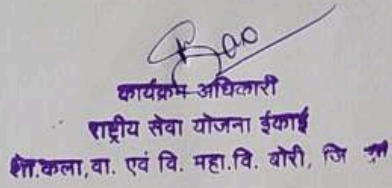 Rao
कार्यक्रम अधिकारी
राष्ट्रीय सेवा योजना ईकाई
शा.कला,वा. एवं वि. महा.वि. बोरी, जि